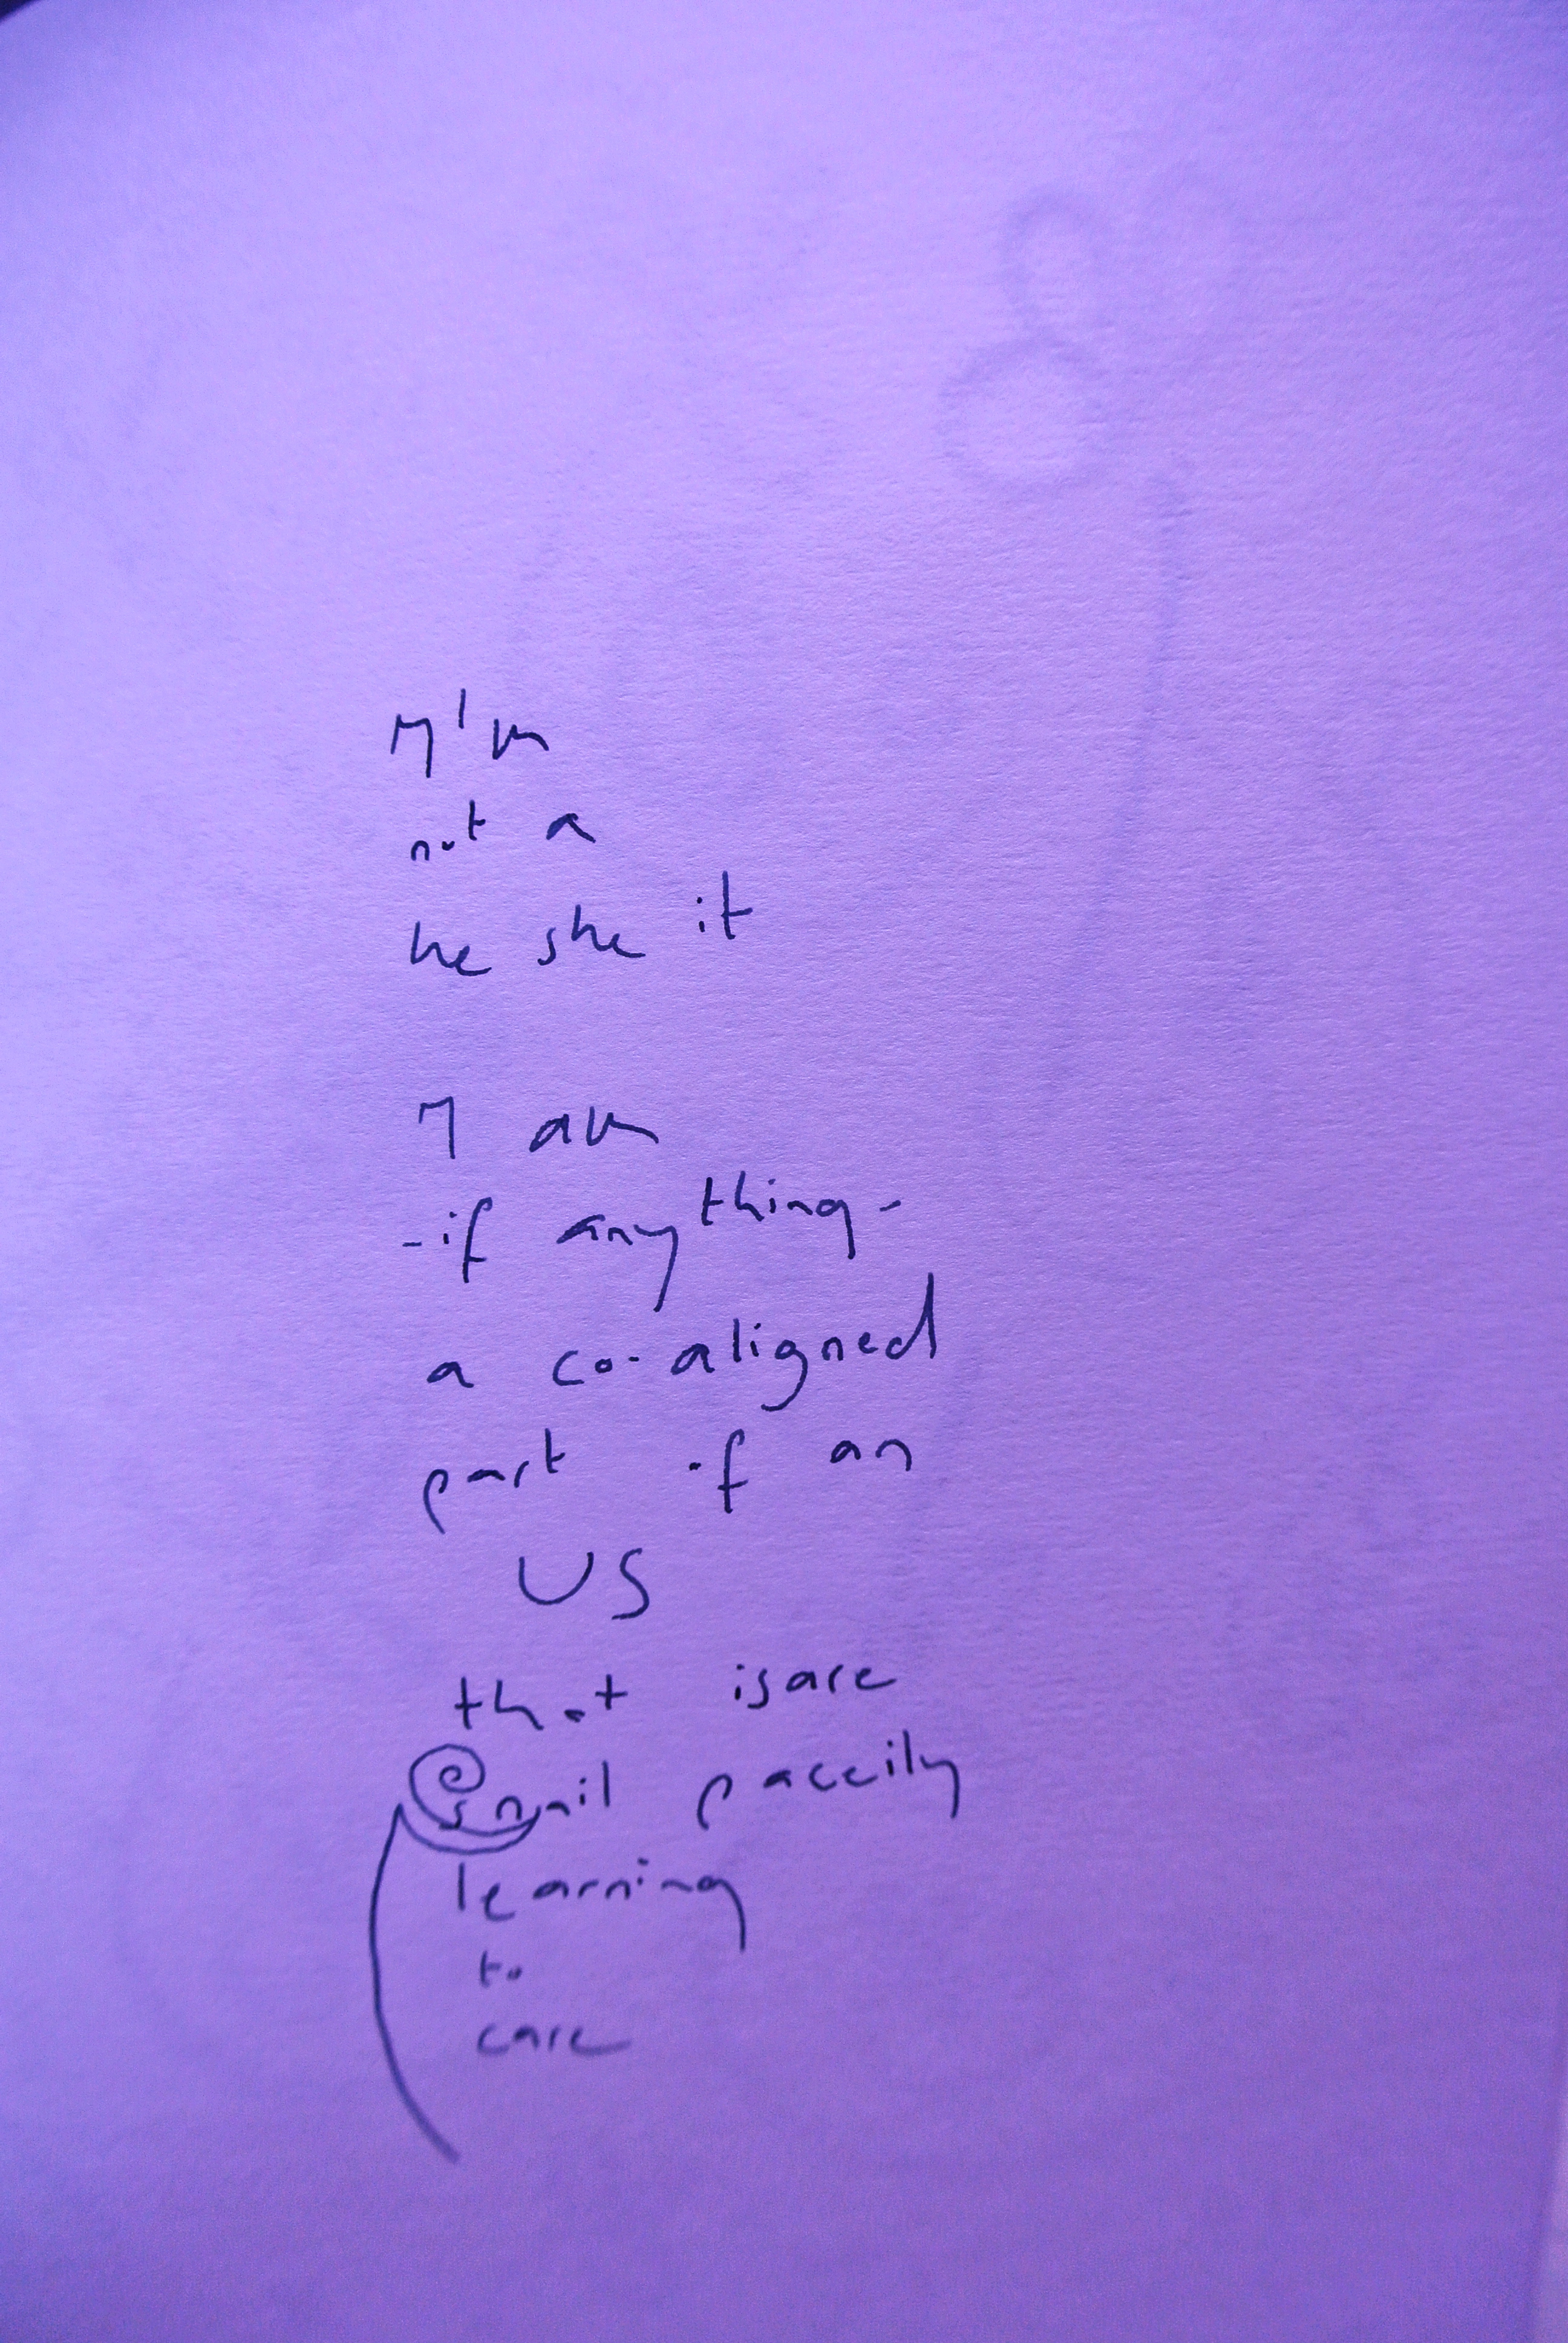 I'm
not a
he she it
I am
-if anything-
a co-aligned
part of an
US
that isare
snail paceily
learning
to
care